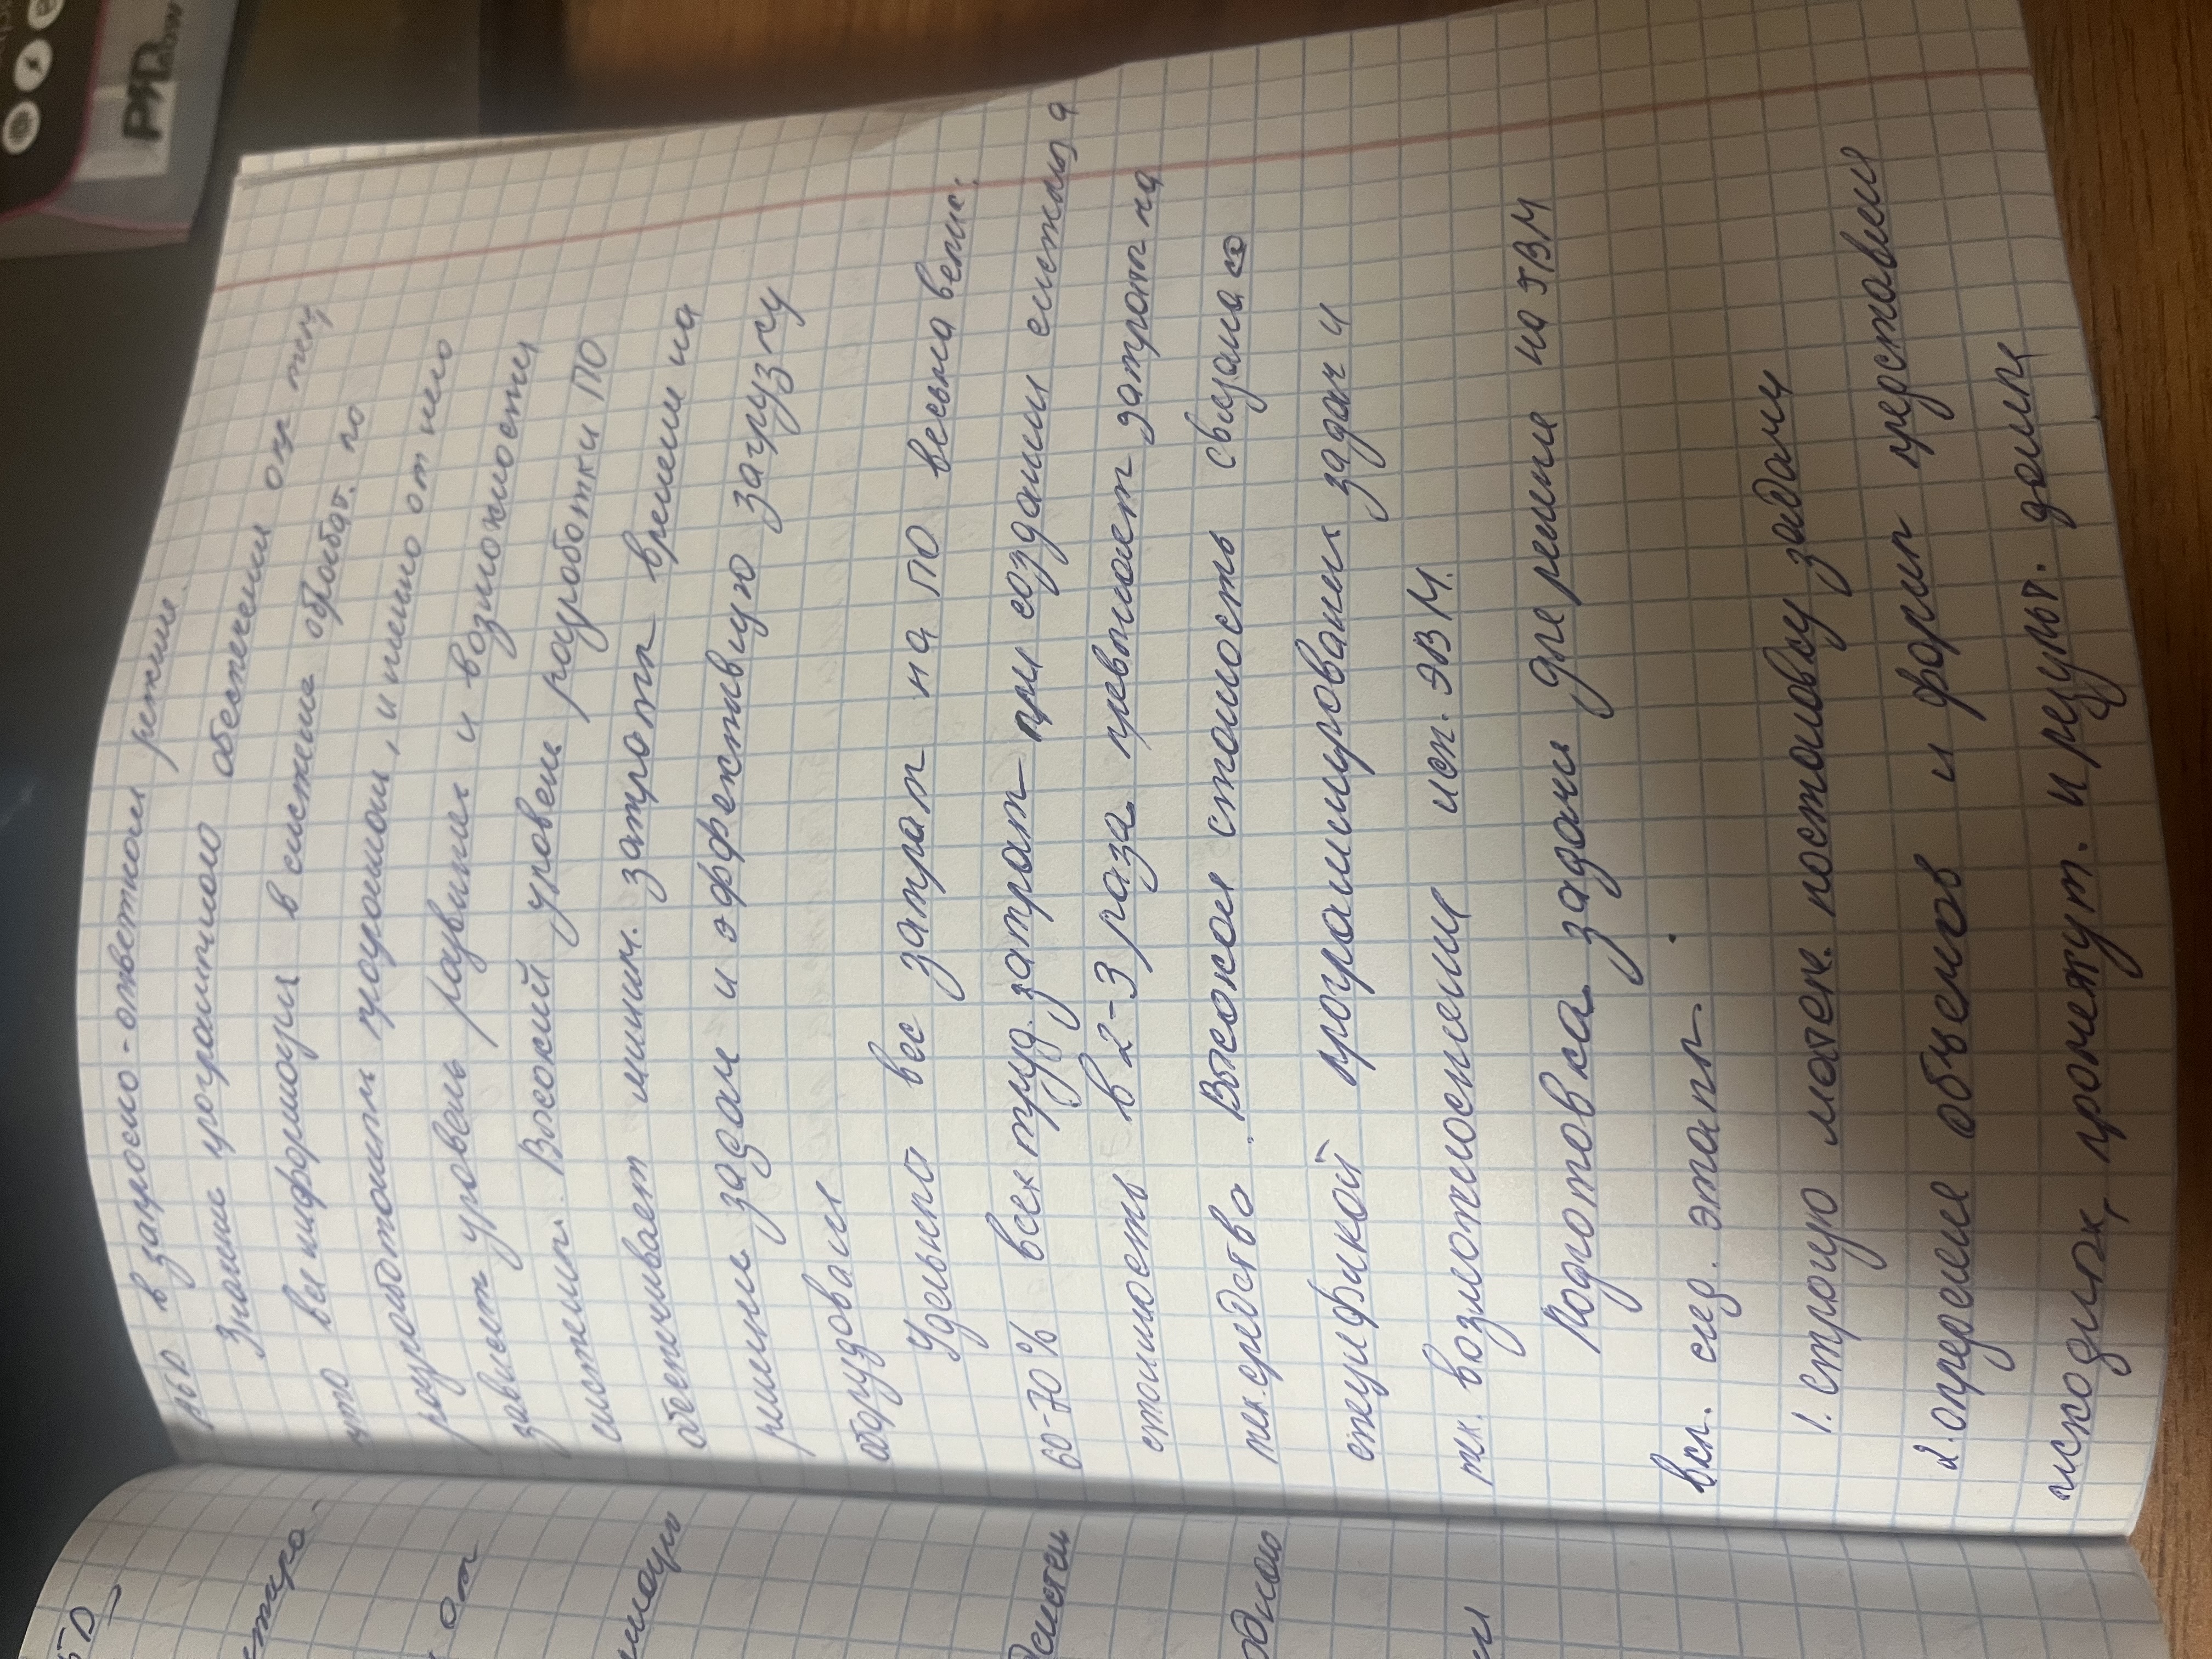 в запросно-ответном режиме.
Значение программного обеспечения опр тем,
что вся информация в системе обрабат. по
разработанным программам, и именно от него
зависит уровень развития и возможности
системы. Высокий уровень разработки ПО
обеспечивает миним. затраты времени на
решение задач и эффективную загрузку
оборудования
Удельный вес затрат на ПО весьма велик.
60-70% всех труд. затрат при создании системы, а
стоимость в 2-3 раза превышает затраты на
тех. средства. Высокая стоимость связана со
спецификой программирования задач и
тех. возможностями исп. ЭВМ.
Подготовка задачи для решения на ЭВМ
вкл. след. этапы.
1. строгую матем. постановку задачи
2. определение объемов и форм представления
исходных, промежут. и результ. данных
БД
от